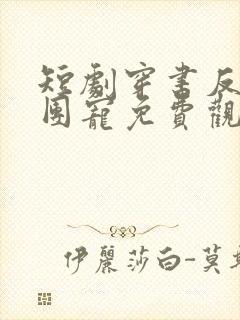 短劇穿書反
團寵免費觀
伊麗莎白-莫